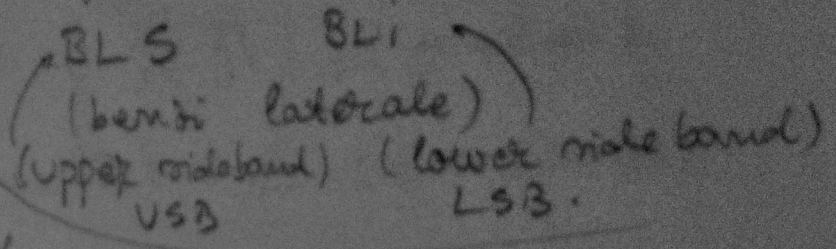 BLS BLi
(benzi laterale)
(upper sideband) (lower side band)
USB LSB.